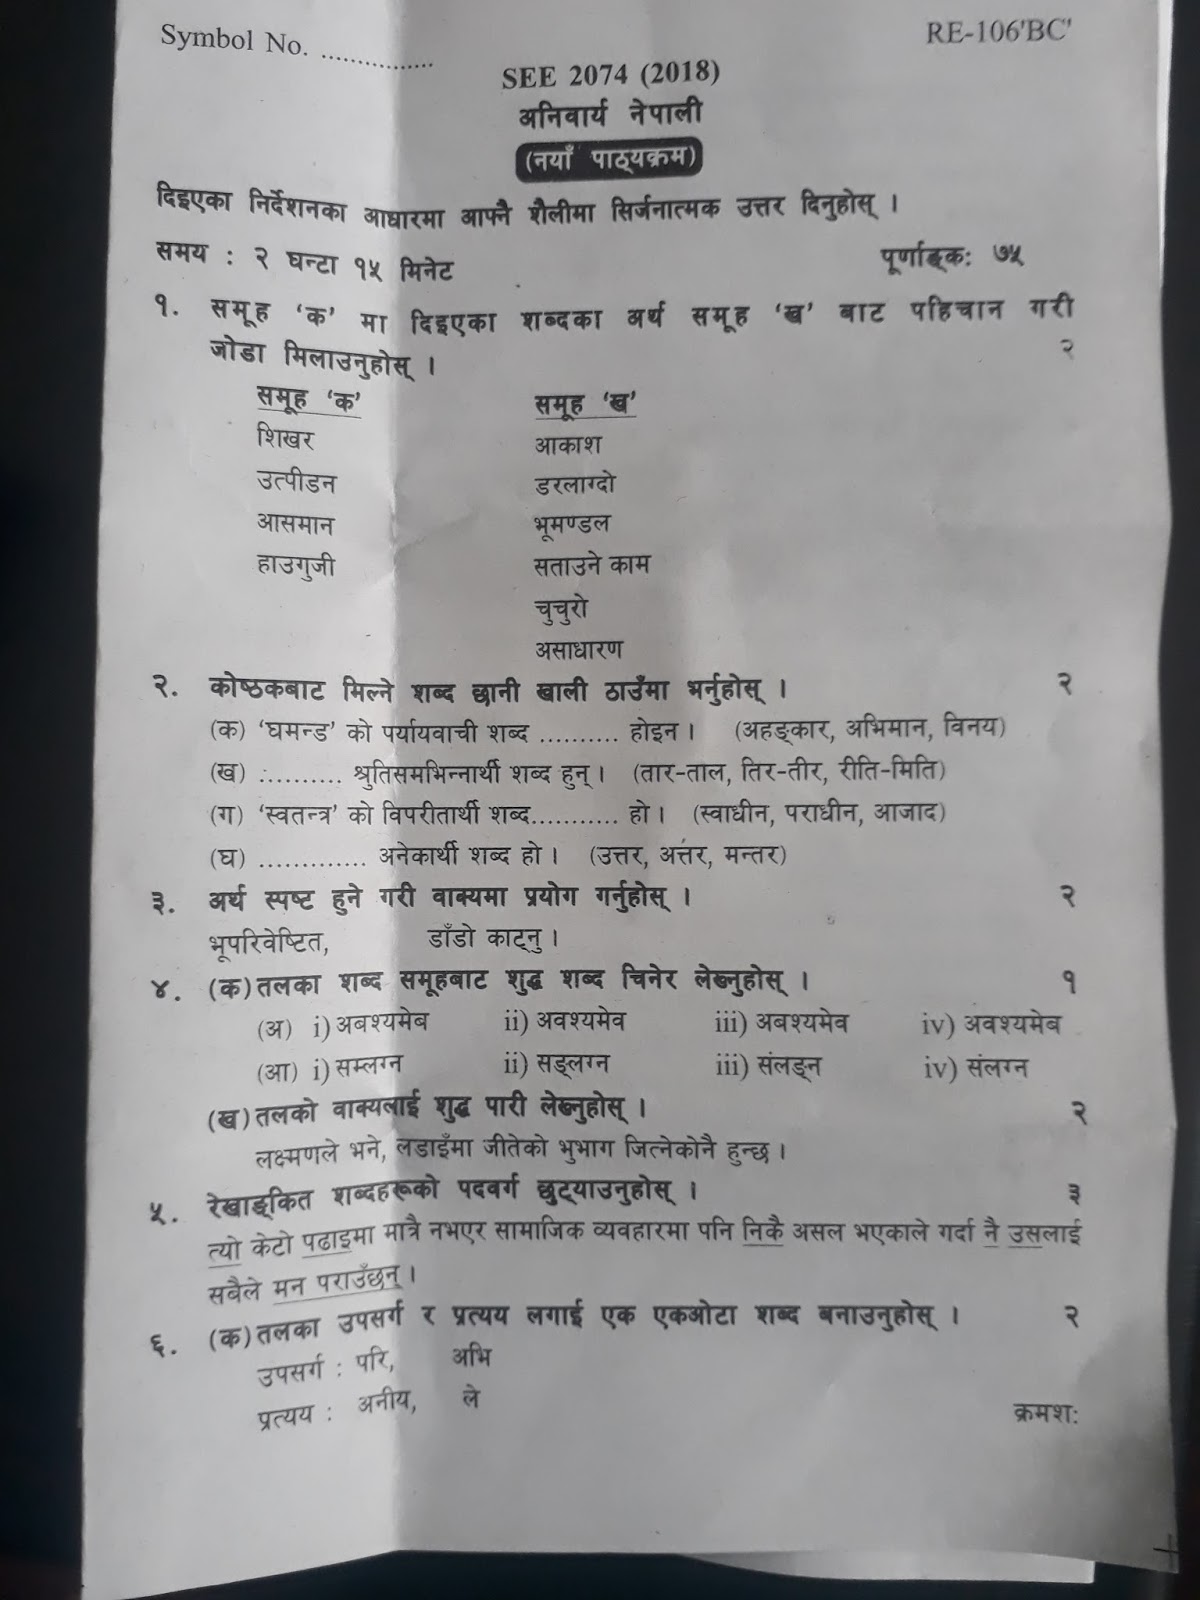 Symbol No. ...............
RE-106'BC'
SEE 2074 (2018)
अनिवार्य नेपाली
(नयाँ पाठ्यक्रम)
दिइएका निर्देशनका आधारमा आफ्नै शैलीमा सिर्जनात्मक उत्तर दिनुहोस् ।
समय : २ घन्टा १५ मिनेट पूर्णाङ्कः ७५
१. समूह ‘क’ मा दिइएका शब्दका अर्थ समूह ‘ख’ बाट पहिचान गरी
जोडा मिलाउनुहोस् । २
समूह ‘क’ समूह ‘ख’
शिखर आकाश
उत्पीडन डरलाग्दो
आसमान भूमण्डल
हाउगुजी सताउने काम
चुचुरो
असाधारण
२. कोष्ठकबाट मिल्ने शब्द छानी खाली ठाउँमा भर्नुहोस् । २
(क) ‘घमन्ड’ को पर्यायवाची शब्द .......... होइन । (अहङ्कार, अभिमान, विनय)
(ख) :.......... श्रुतिसमभिन्नार्थी शब्द हुन् । (तार-ताल, तिर-तीर, रीति-मिति)
(ग) ‘स्वतन्त्र’ को विपरीतार्थी शब्द........... हो । (स्वाधीन, पराधीन, आजाद)
(घ) ............. अनेकार्थी शब्द हो । (उत्तर, अत्तर, मन्तर)
३. अर्थ स्पष्ट हुने गरी वाक्यमा प्रयोग गर्नुहोस् । २
भूपरिवेष्टित, डाँडो काट्नु ।
४. (क) तलका शब्द समूहबाट शुद्ध शब्द चिनेर लेख्नुहोस् । १
(अ) i) अबश्यमेब ii) अवश्यमेव iii) अबश्यमेव iv) अवश्यमेब
(आ) i) सम्लग्न ii) सङ्लग्न iii) संलङ्न iv) संलग्न
(ख) तलको वाक्यलाई शुद्ध पारी लेख्नुहोस् । २
लक्ष्मणले भने, लडाइँमा जीतेको भुभाग जित्नेकोनै हुन्छ ।
५. रेखाङ्कित शब्दहरूको पदवर्ग छुट्याउनुहोस् । ३
त्यो केटो पढाइमा मात्रै नभएर सामाजिक व्यवहारमा पनि निकै असल भएकाले गर्दा नै उसलाई
सबैले मन पराउँछन् ।
६. (क) तलका उपसर्ग र प्रत्यय लगाई एक एकओटा शब्द बनाउनुहोस् । २
उपसर्ग : परि, अभि
प्रत्यय : अनीय, ले
क्रमशः